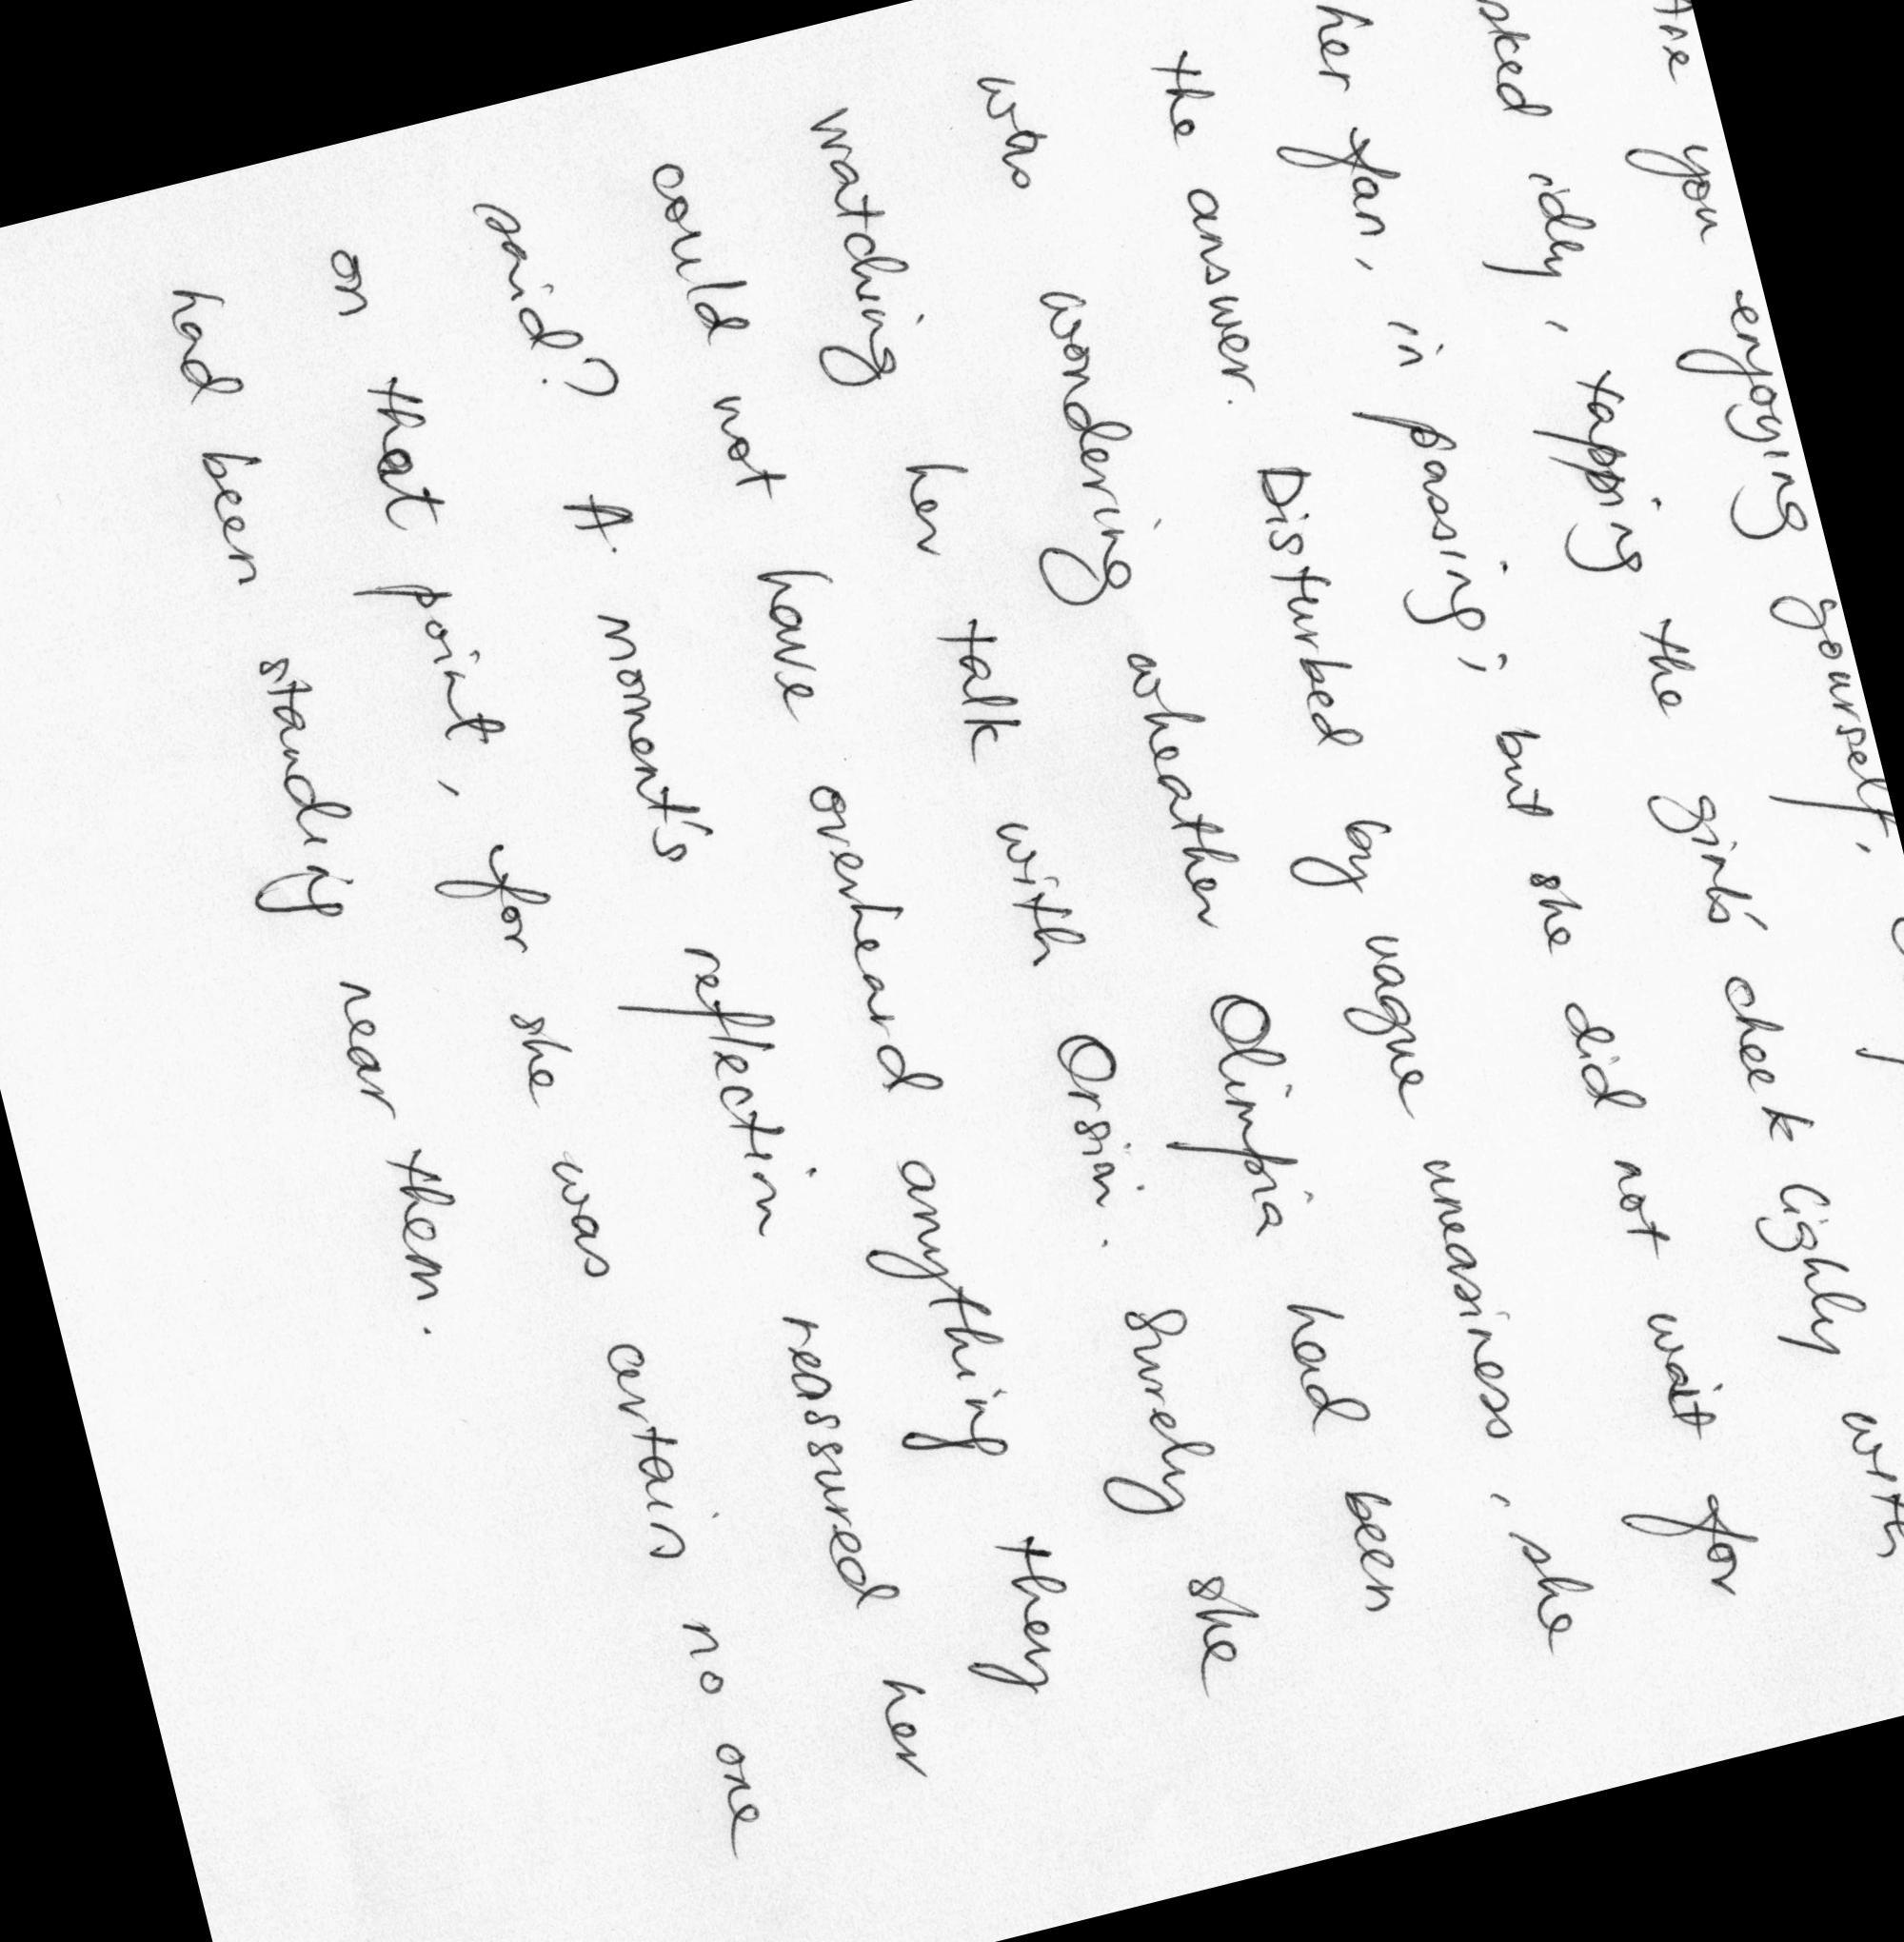 Are you enjoying yourself,
asked idly, tapping the girl's cheek lighly with
her fan, in passing; but she did not wait for
the answer. Disturbed by vague uneasiness, she
was wondering wheather Olimpia had been
watching her talk with Orsini. Surely she
could not have overheard anything they
said? A moment's reflection reassured her
on that point, for she was certain no one
had been standing near them.